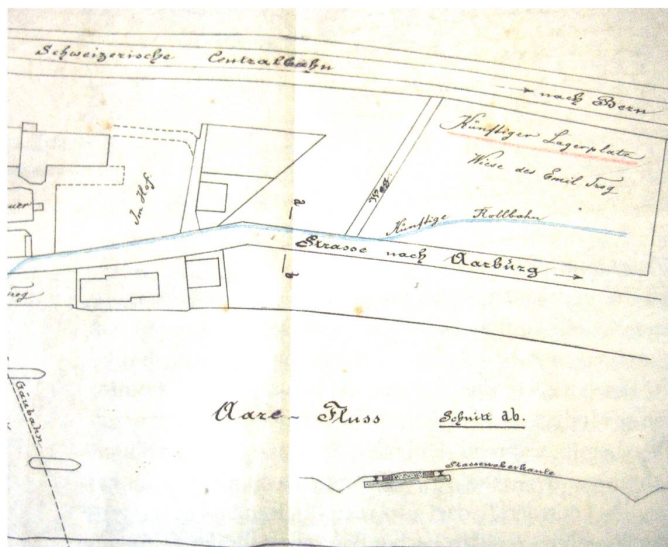 Schweizerische Centralbahn
nach Bern
Künftiger Lagerplatz
Wiese des Emil Trog
Im Hof
Weg
a
Künftige Rollbahn
Strasse nach Aarburg
b
Trog
Gäubahn
Aare - Fluss
Schnitt ab.
Strassenoberkante